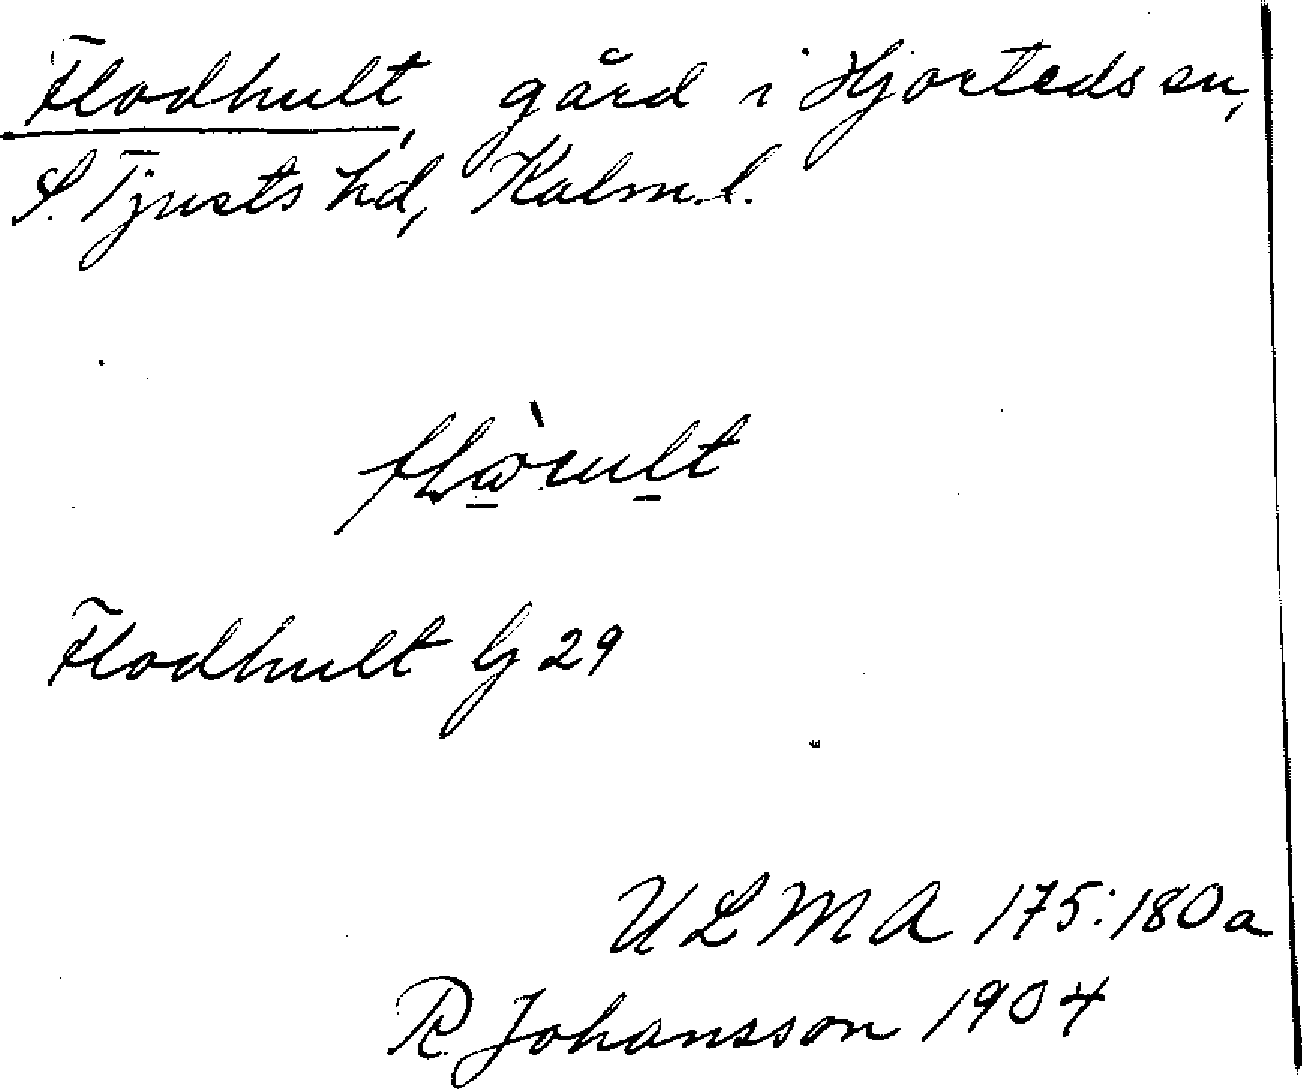 Flodhult, gård i Hjorteds sn,
S. Tjusts hd, Kalm. l.
Flodhult G 29
ULMA 175:180a
R. Johansson 1904